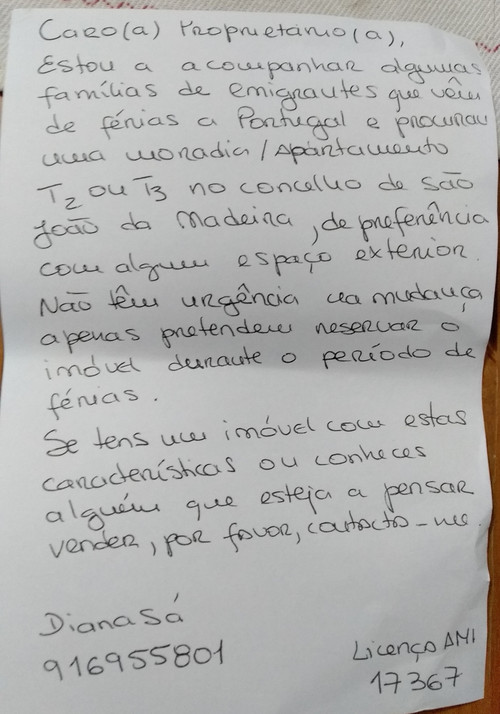 Caro(a) Proprietário(a),
Estou a acompanhar algumas
famílias de emigrantes que vêm
de férias a Portugal e procuram
uma moradia/Apartamento
T2 ou T3 no concelho de são
joão da Madeira, de preferência
com algum espaço exterior.
Não têm urgência na mudança
apenas pretendem reservar o
imóvel durante o período de
férias.
Se tens um imóvel com estas
características ou conheces
alguém que esteja a pensar
vender, por favor, contacta-me.
Diana Sá
916955801
Licença AMI
17367